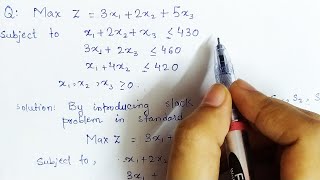 Q: Max Z = 3x₁ + 2x₂ + 5x₃
Subject to x₁ + 2x₂ + x₃ ≤ 430
3x₁ + 2x₃ ≤ 460
x₁ + 4x₂ ≤ 420
x₁, x₂, x₃ ≥ 0
Solution: By introducing slack S₂
problem in standard
Max Z = 3x₁ +
Subject to, x₁ + 2x₂
3x₁ +